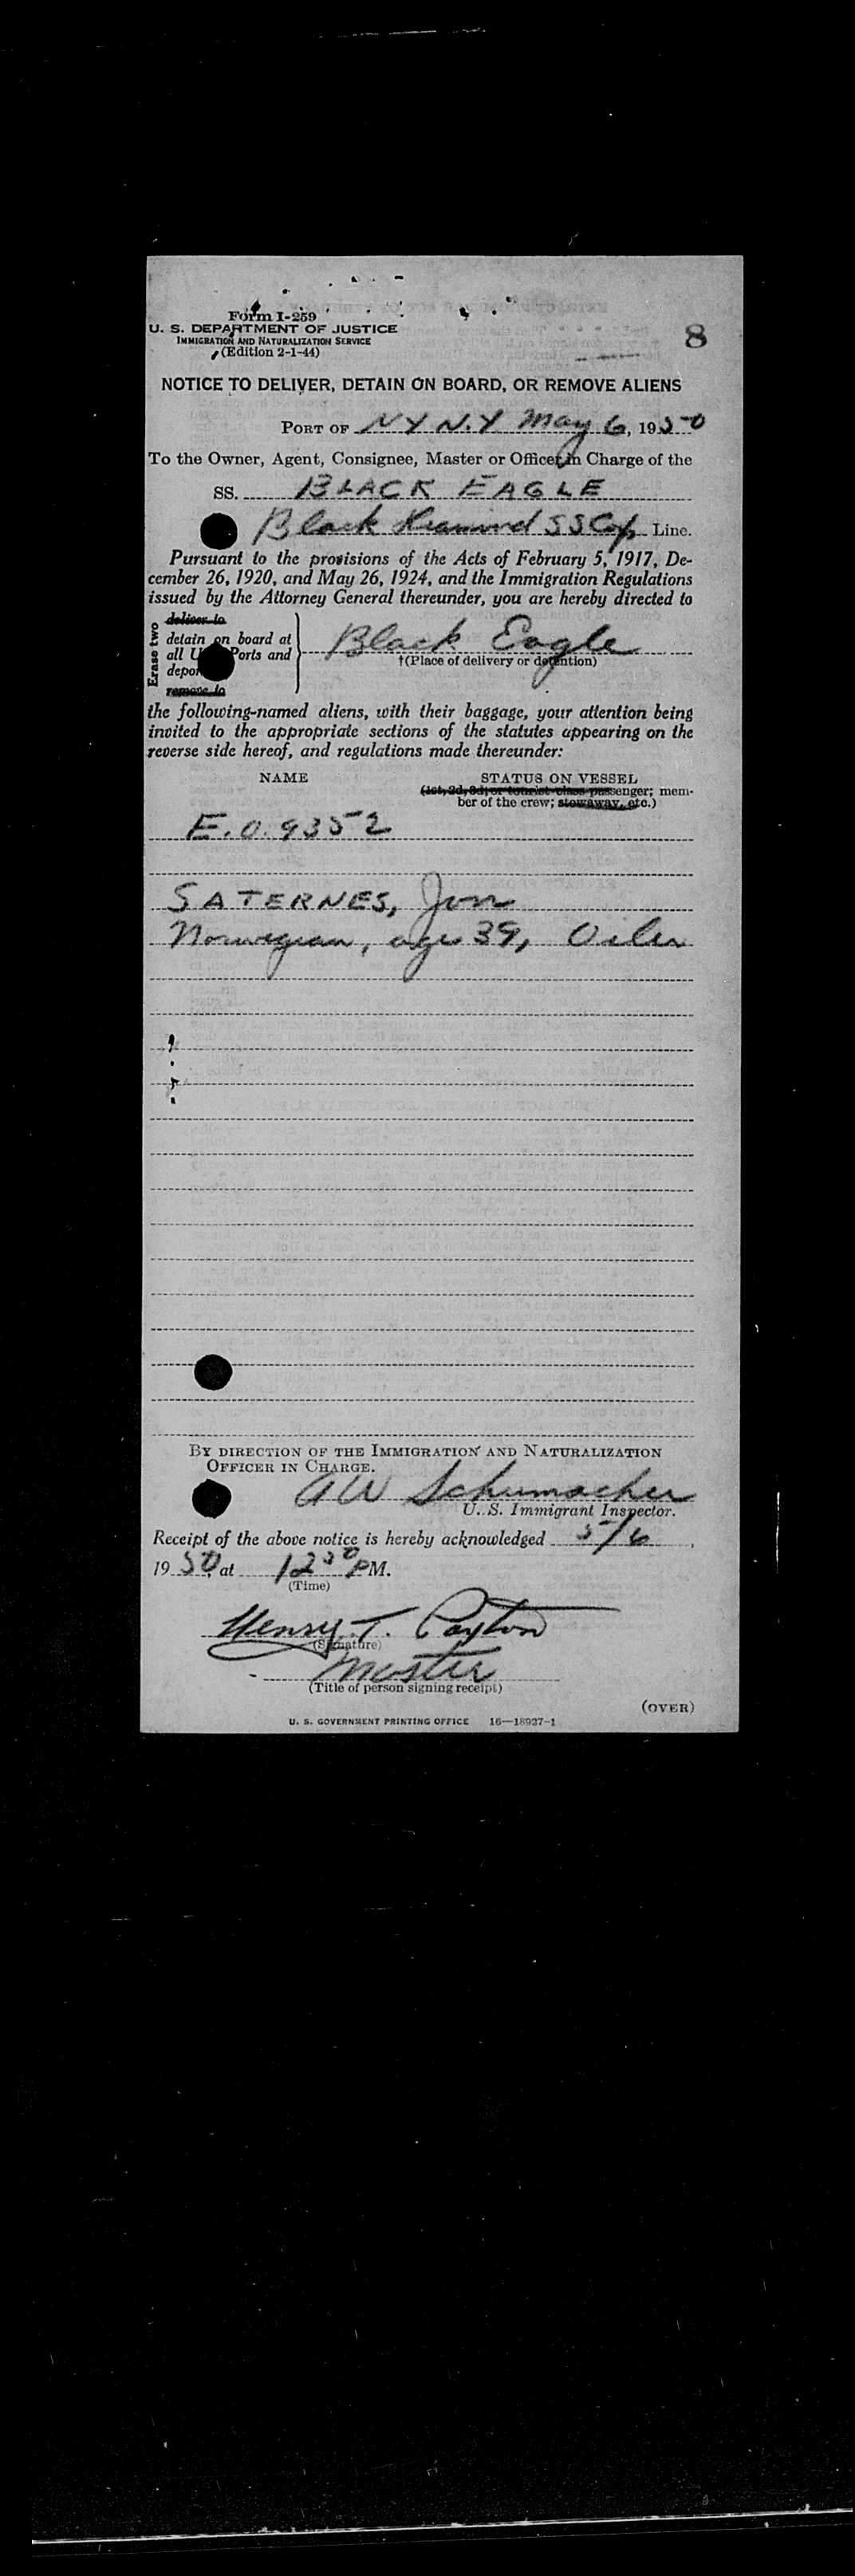 Form I-259
U. S. DEPARTMENT OF JUSTICE
IMMIGRATION AND NATURALIZATION SERVICE
(Edition 2-1-44)
8
NOTICE TO DELIVER, DETAIN ON BOARD, OR REMOVE ALIENS
PORT OF NY N.Y May 6, 1950
To the Owner, Agent, Consignee, Master or Officer in Charge of the
SS. BLACK EAGLE
Black Diamond SS Corp Line.
Pursuant to the provisions of the Acts of February 5, 1917, De-
cember 26, 1920, and May 26, 1924, and the Immigration Regulations
issued by the Attorney General thereunder, you are hereby directed to
Erase two
deliver to
detain on board at
all U Ports and
depor
remove to
Black Eagle
†(Place of delivery or detention)
the following-named aliens, with their baggage, your attention being
invited to the appropriate sections of the statutes appearing on the
reverse side hereof, and regulations made thereunder:
NAME STATUS ON VESSEL
(1st, 2d, 3d, or tourist class passenger; mem-
ber of the crew; stowaway, etc.)
E.O. 9352
SATERNES, Jon
Norwegian, age 39, Oiler
BY DIRECTION OF THE IMMIGRATION AND NATURALIZATION
OFFICER IN CHARGE.
AW Schumacher
U. S. Immigrant Inspector.
Receipt of the above notice is hereby acknowledged 5/6,
1950, at 12 30 PM.
(Time)
Henry T. Payton
(Signature)
Master
(Title of person signing receipt)
(OVER)
U. S. GOVERNMENT PRINTING OFFICE 16—18927-1